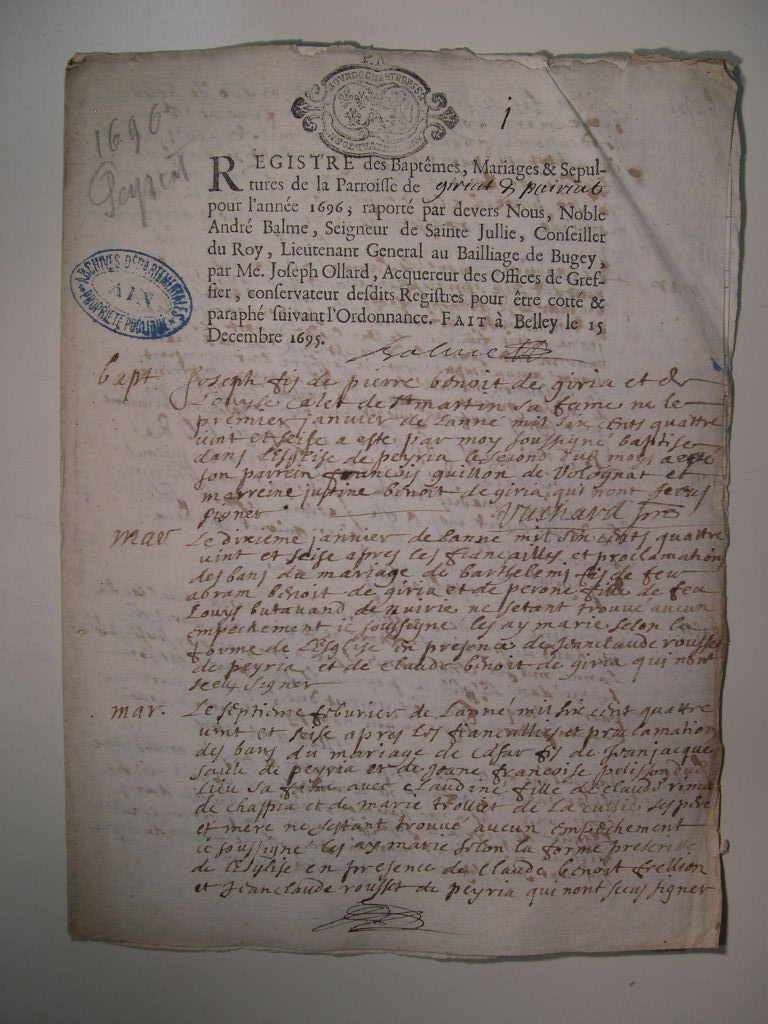 1696
Peyriat
1
REGISTRE des Baptêmes, Mariages & Sepul-
tures de la Parroisse de giriat & peiriat
pour l'année 1696; raporté par devers Nous, Noble
André Balme, Seigneur de Sainte Jullie, Conseiller
du Roy, Lieutenant General au Bailliage de Bugey,
par Me. Joseph Ollard, Acquereur des Offices de Gref-
fier, conservateur desdits Registres pour être cotté &
paraphé suivant l'Ordonnance. FAIT à Belley le 15
Decembre 1695.
ARCHIVES DÉPARTEMENTALES
AIN
PROPRIÉTÉ PUBLIQUE
Balme
bapt Joseph fis de pierre benoit de giria et de
Louyse Calet de st martin sa fame ne le
premier janvier de Lanné mil six cents quattre
vint et seise a este par moy soussigné baptise
dans L'Esglise de peyria le second dud mois a esté
son parrein francois guillon de Volognat et
marreine justine benoit de giria qui nont sceus
signer
mar Le dixieme janvier de Lanne mil six cents quattre
vint et seise apres les fiancailles et proclamation
des bans du mariage de barthelemi fis de feu
abram benoit de giria et de perone fille de feu
Louys butavand de nuirie ne sétant trouvé aucun
empechement ie soussigne les ay marie selon la
forme de L'Esglise en presence de Jeanclaude rousset
de peyria et de claude benoit de giria qui nont
sceu signer
mar. Le septieme feburier de Lanné mil six cent quattre
vint et seise apres les fiancallies et proclamation
des bans du mariage de Cesar fis de Jeanjacque
de peyria et de Jeane francoise pelisson dud
Lieu sa fame avec claudine fille de claude
de chassia et de marie de La cuisie ses pere
et mère ne sestant trouvé aucun empeschement
ie soussigné les ay marie selon la forme prescritte
de L'Esglise en presence de Claude benoit
et Jeanclaude rousset de peyria qui nont sceus signer